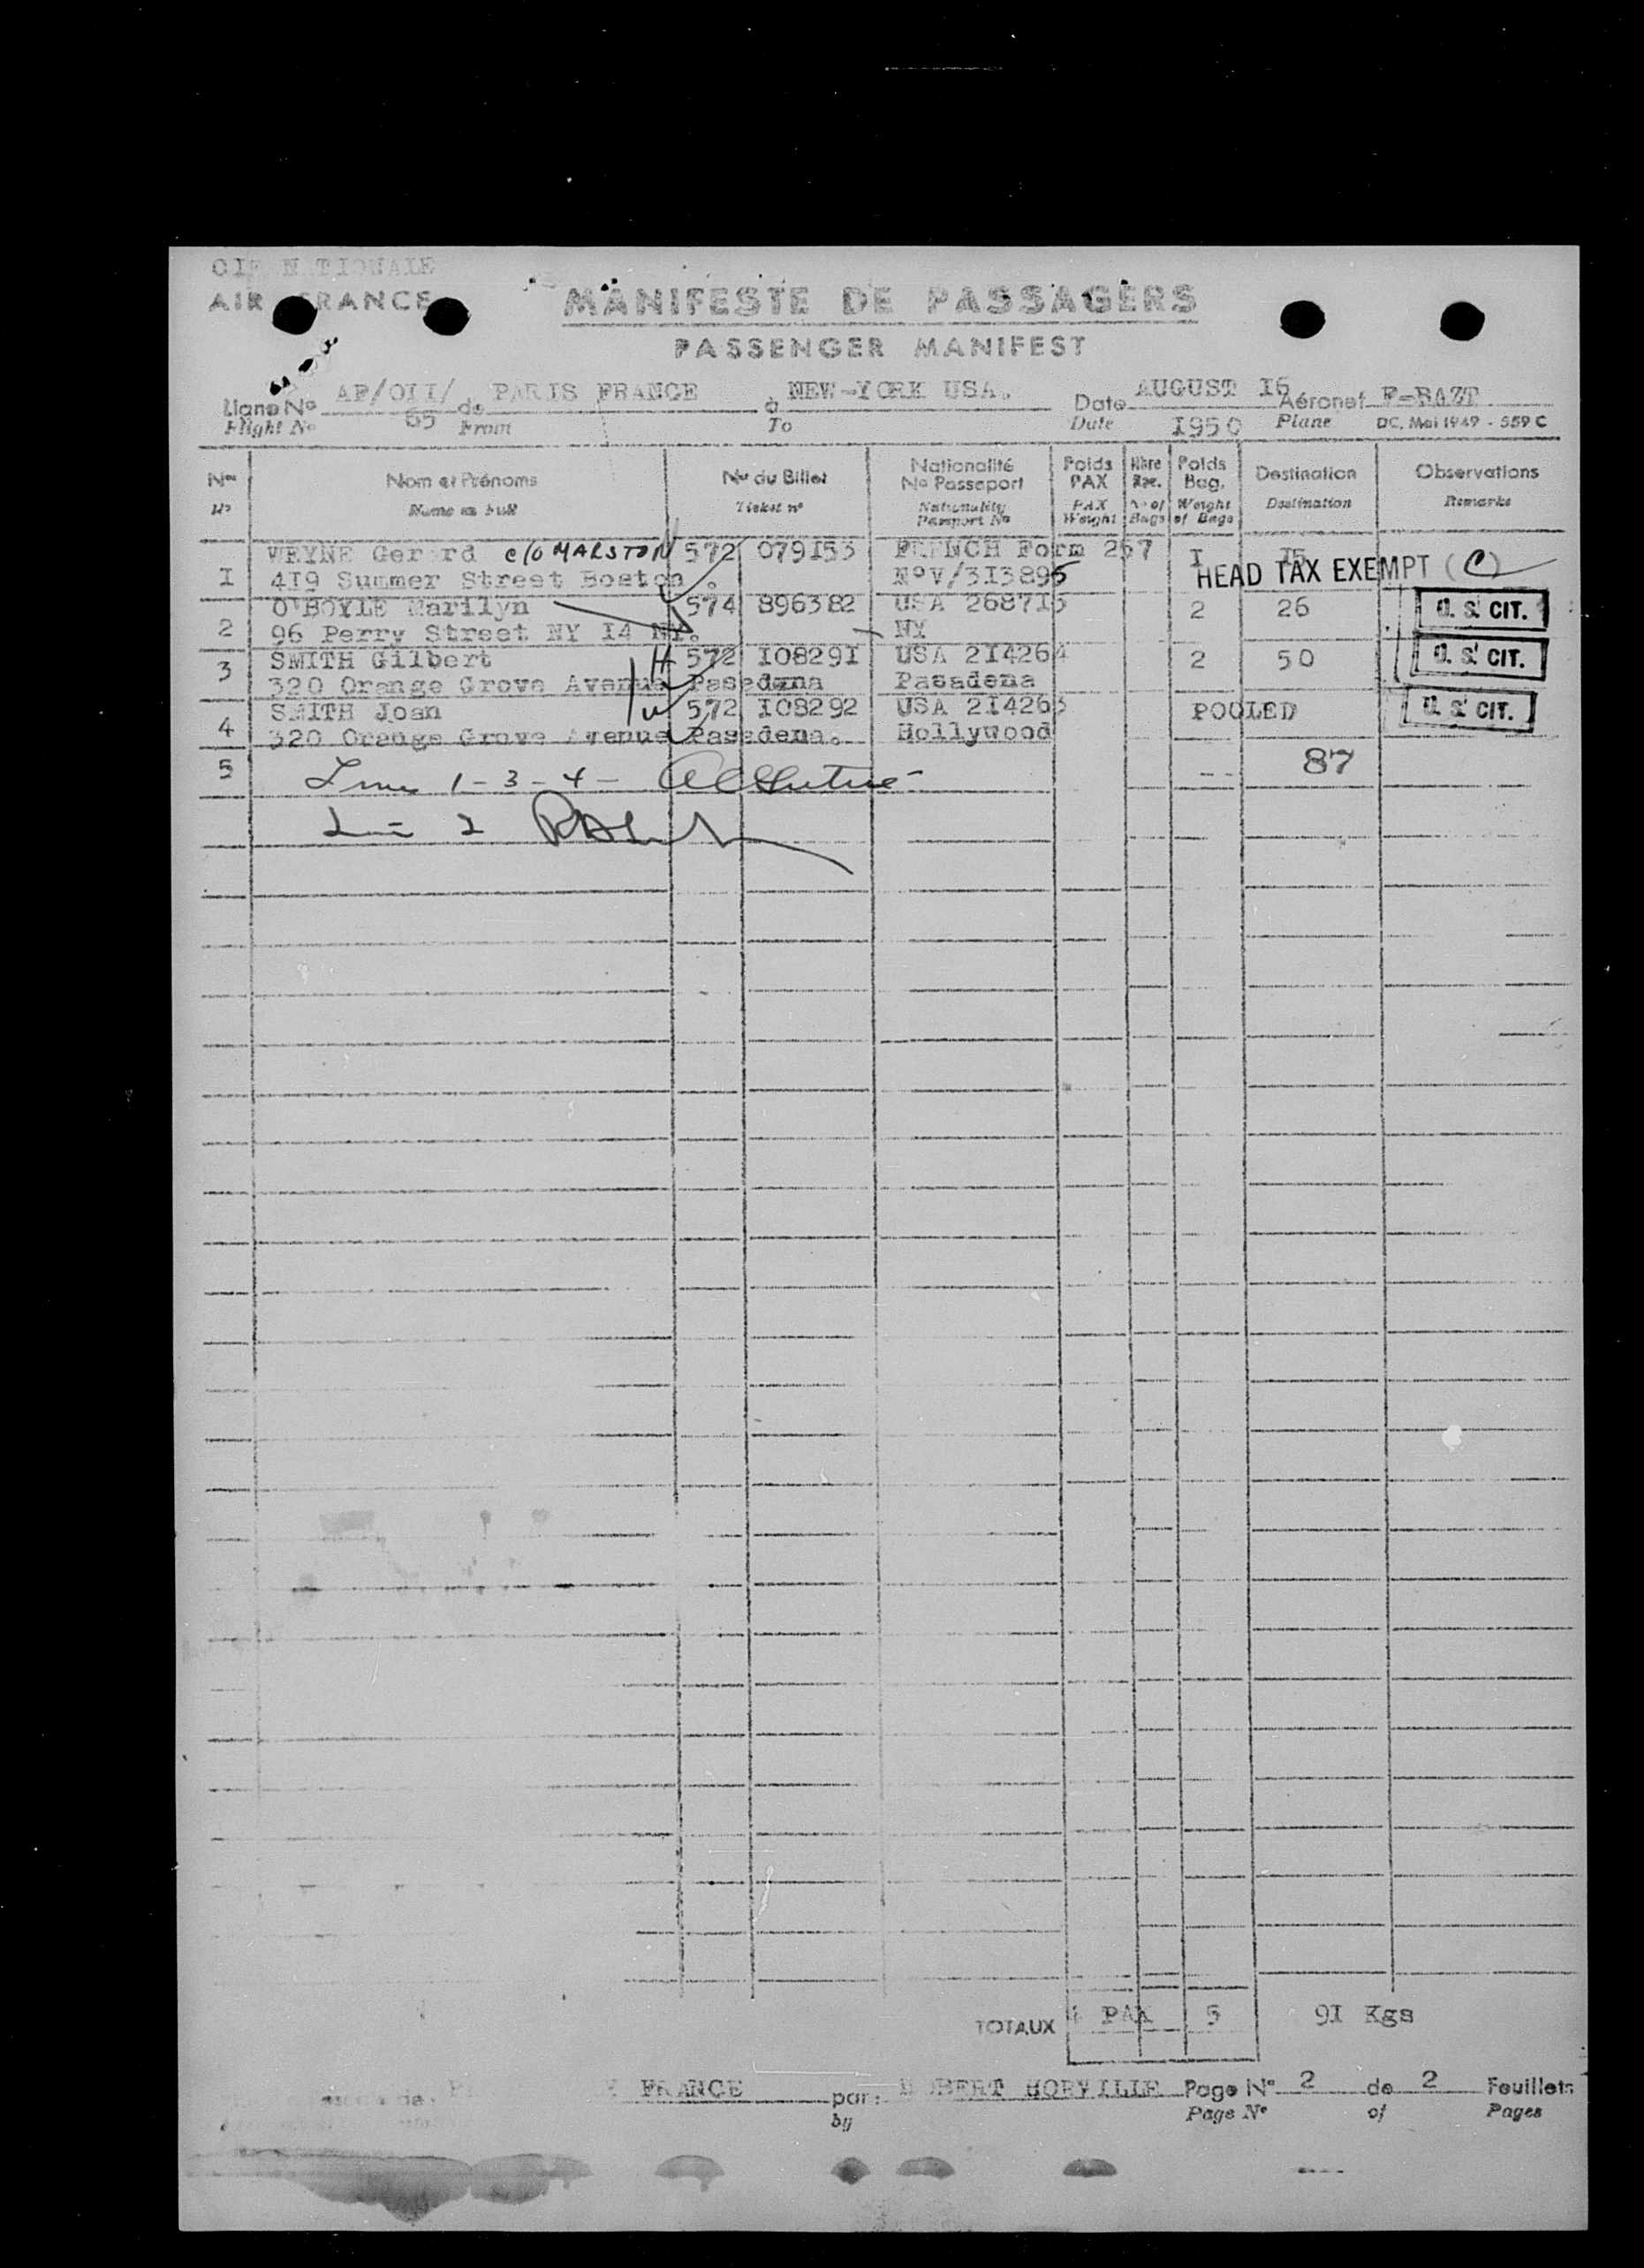 AIR FRANCE
MANIFESTE DE PASSAGERS
PASSENGER MANIFEST
Ligne No AF/OII/ de PARIS FRANCE à NEW-YORK USA. Date AUGUST I6 Aéronef F-BAZT
Flight No 65 From To Date I950 Plane DC. Mai 1949 - 559 C
Nos Nom et Prénoms No du Billet Nationalité No Passeport Poids PAX Nbre Bag. Poids Bag. Destination Observations
No Name in full Ticket no Nationality Passport No PAX Weight No of Bags Weight of Bags Destination Remarks
WEYNE Gerard c/o MARSTON 572 079I53 FRENCH Form 257 I I5
I 4I9 Summer Street Boston. NoV/3I3895 HEAD TAX EXEMPT (C)
O'BOYLE Marilyn 574 896382 USA 2687I5 2 26 U.S. CIT.
2 96 Perry Street NY I4 NY. NY
3 SMITH Gilbert H 572 I0829I USA 2I4264 2 50 U.S. CIT.
320 Orange Grove Avenue Pasadena Pasadena
SMITH Joan W 572 I08292 USA 2I4263 POOLED U.S. CIT.
4 320 Orange Grove Avenue Pasadena. Hollywood
5 1-3-4- -- 87
2
TOTAUX 4 PAX 5 9I Kgs
FRANCE par: ROBERT HORVILLE Page No 2 de 2 Feuillets
by Page No of Pages